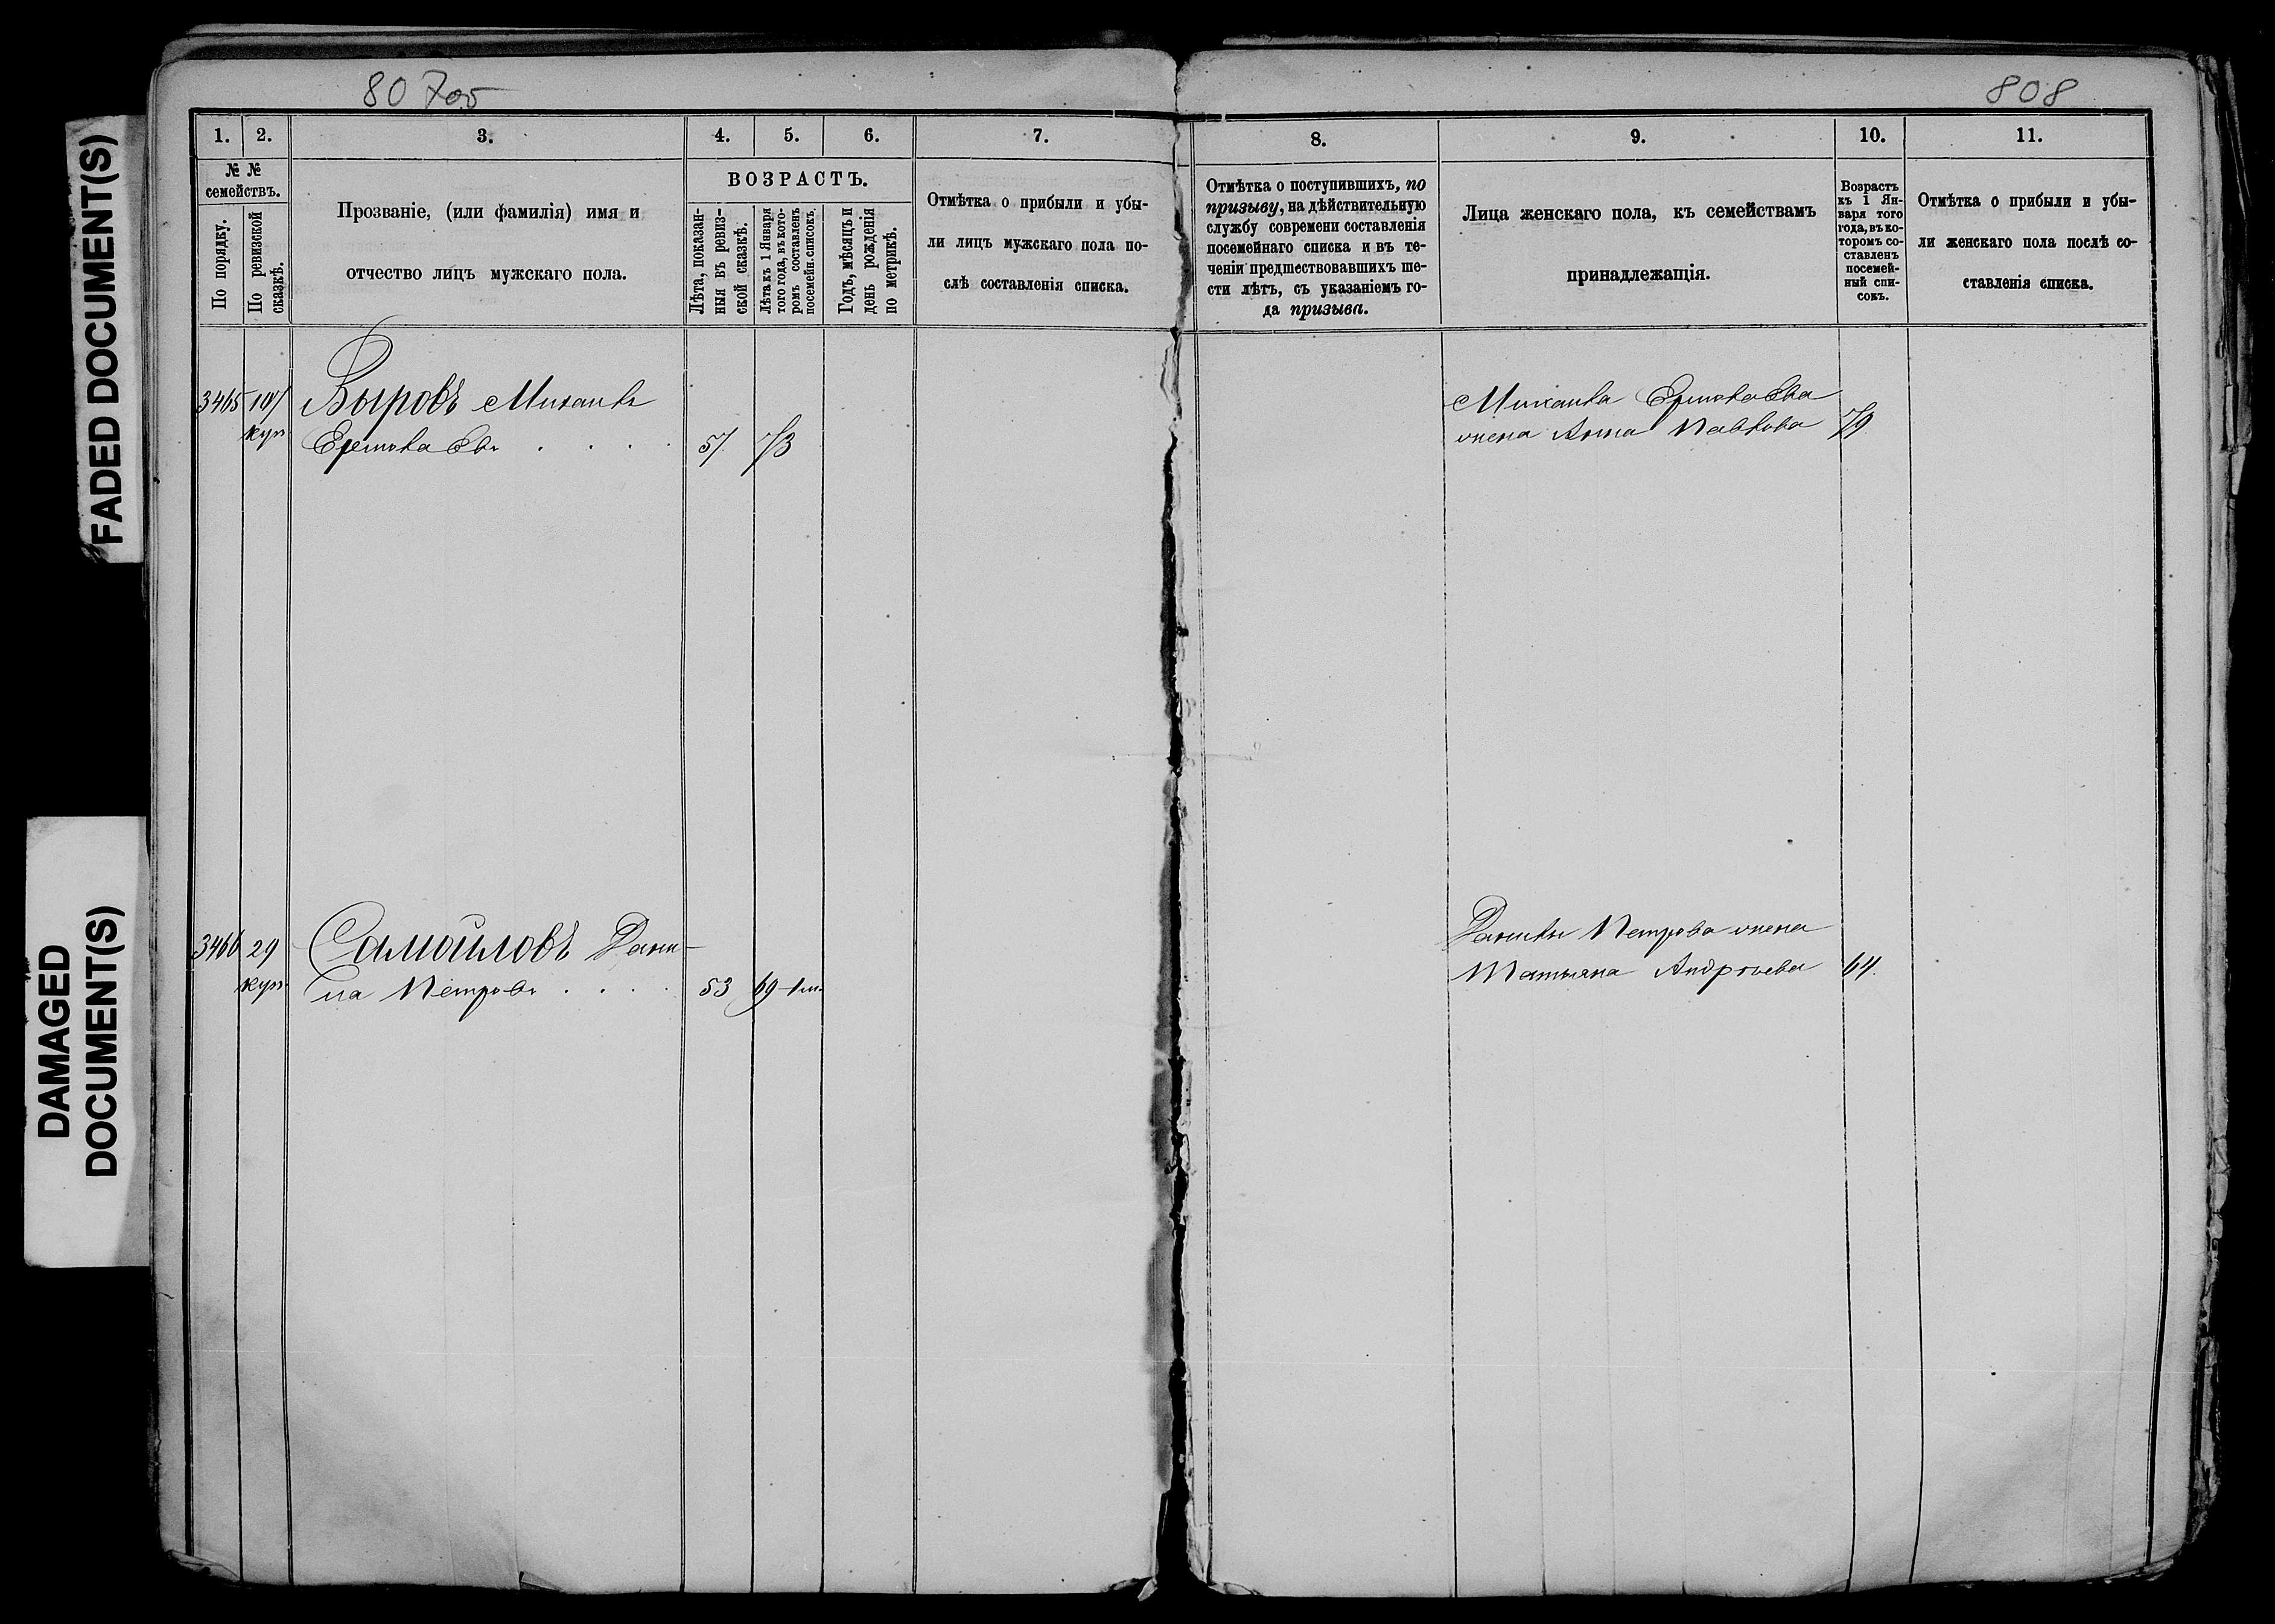 80 7об
808
FADED DOCUMENT(S)
DAMAGED
DOCUMENT(S)
1.
2.
3.
4.
5.
6.
7.
8.
9.
10.
11.
№ №
семействъ.
По порядку.
По ревизской
сказкѣ.
Прозваніе, (или фамилія) имя и
отчество лицъ мужскаго пола.
ВОЗРАСТЪ.
Лѣта, показан-
ныя въ ревиз-
ской сказкѣ.
Лѣта къ 1 Января
того года, въ кото-
ромъ составленъ
посемейн. списокъ.
Годъ, мѣсяцъ и
день рожденія
по метрикѣ.
Отмѣтка о прибыли и убы-
ли лицъ мужскаго пола по-
слѣ составленія списка.
Отмѣтка о поступившихъ, по
призыву, на дѣйствительную
службу современи составленія
посемейнаго списка и въ те-
ченіи предшествовавшихъ ше-
сти лѣтъ, съ указаніемъ го-
да призыва.
Лица женскаго пола, къ семействамъ
принадлежащія.
Возрастъ
къ 1 Ян-
варя того
года, въ ко-
торомъ со-
ставленъ
посемей-
ный спи-
сокъ.
Отмѣтка о прибыли и убы-
ли женскаго пола послѣ со-
ставленія списка.
3465
куп.
Выровъ Михаилъ
57 73
Михаила
жена Анна Павлова 79
3466 29 Самойловъ Дани-
куп. ла Петровъ 53 69-1м.
Данилы Петрова жена
Татьяна Андреева 64.